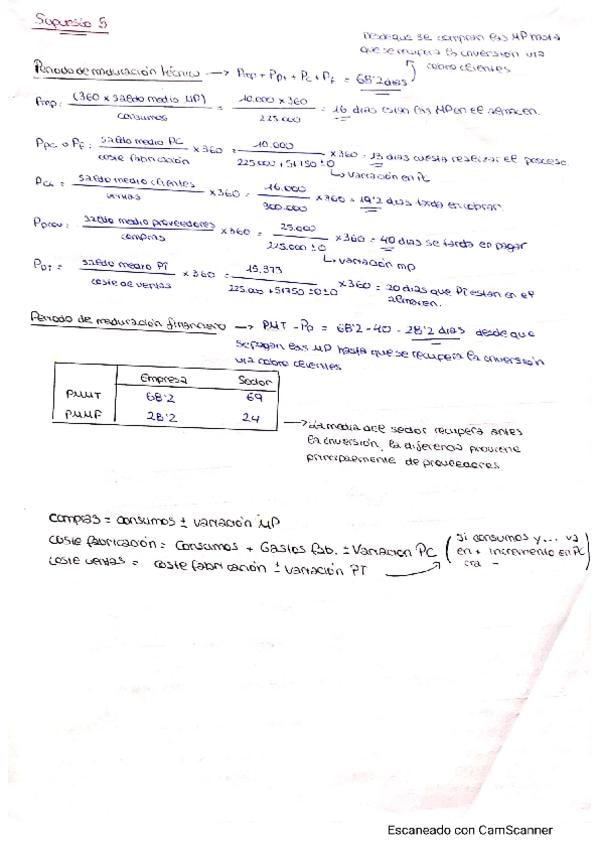 Supuesto 5
Desde que se compran las MP hasta
que se recupera la inversión vía
cobro clientes
Periodo de maduración técnico → Pmp + Ppt + Pc + Pf = 68'2 días
Pmp: (360 x saldo medio MP) / consumos = 10.000 x 360 / 225.000 = 16 días están las MP en el almacen.
Ppc o Pf: saldo medio PC / coste fabricación x 360 = 10.000 / 225.000 + 51750 ± 0 x 360 = 13 días cuesta realizar el proceso.
↳ variación en PC
saldo medio clientes / ventas x 360 = 16.000 / 300.000 x 360 = 19'2 días tarda en cobrar.
Pprov: saldo medio proveedores / compras x 360 = 25.000 / 225.000 ± 0 x 360 = 40 días se tarda en pagar
↳ variación mp
Ppt = saldo medio PT / coste de ventas x 360 = 15.373 / 225.000 + 51750 ± 0 ± 0 x 360 = 20 días que PT están en el
almacen.
Periodo de maduración financiero → PMT - Pp = 68'2 - 40 = 28'2 días desde que
se pagan las MP hasta que se recupera la inversión
vía cobro clientes
Empresa Sector
PMMT 68'2 69
PMMF 28'2 24
→ La media del sector recupera antes
la inversión, la diferencia proviene
principalmente de proveedores.
compras = consumos ± variación MP
coste fabricación = Consumos + Gastos fab. ± Variación PC (si consumos y... va
en + incremento en PC
-
coste ventas = coste fabricación ± variación PT
Escaneado con CamScanner